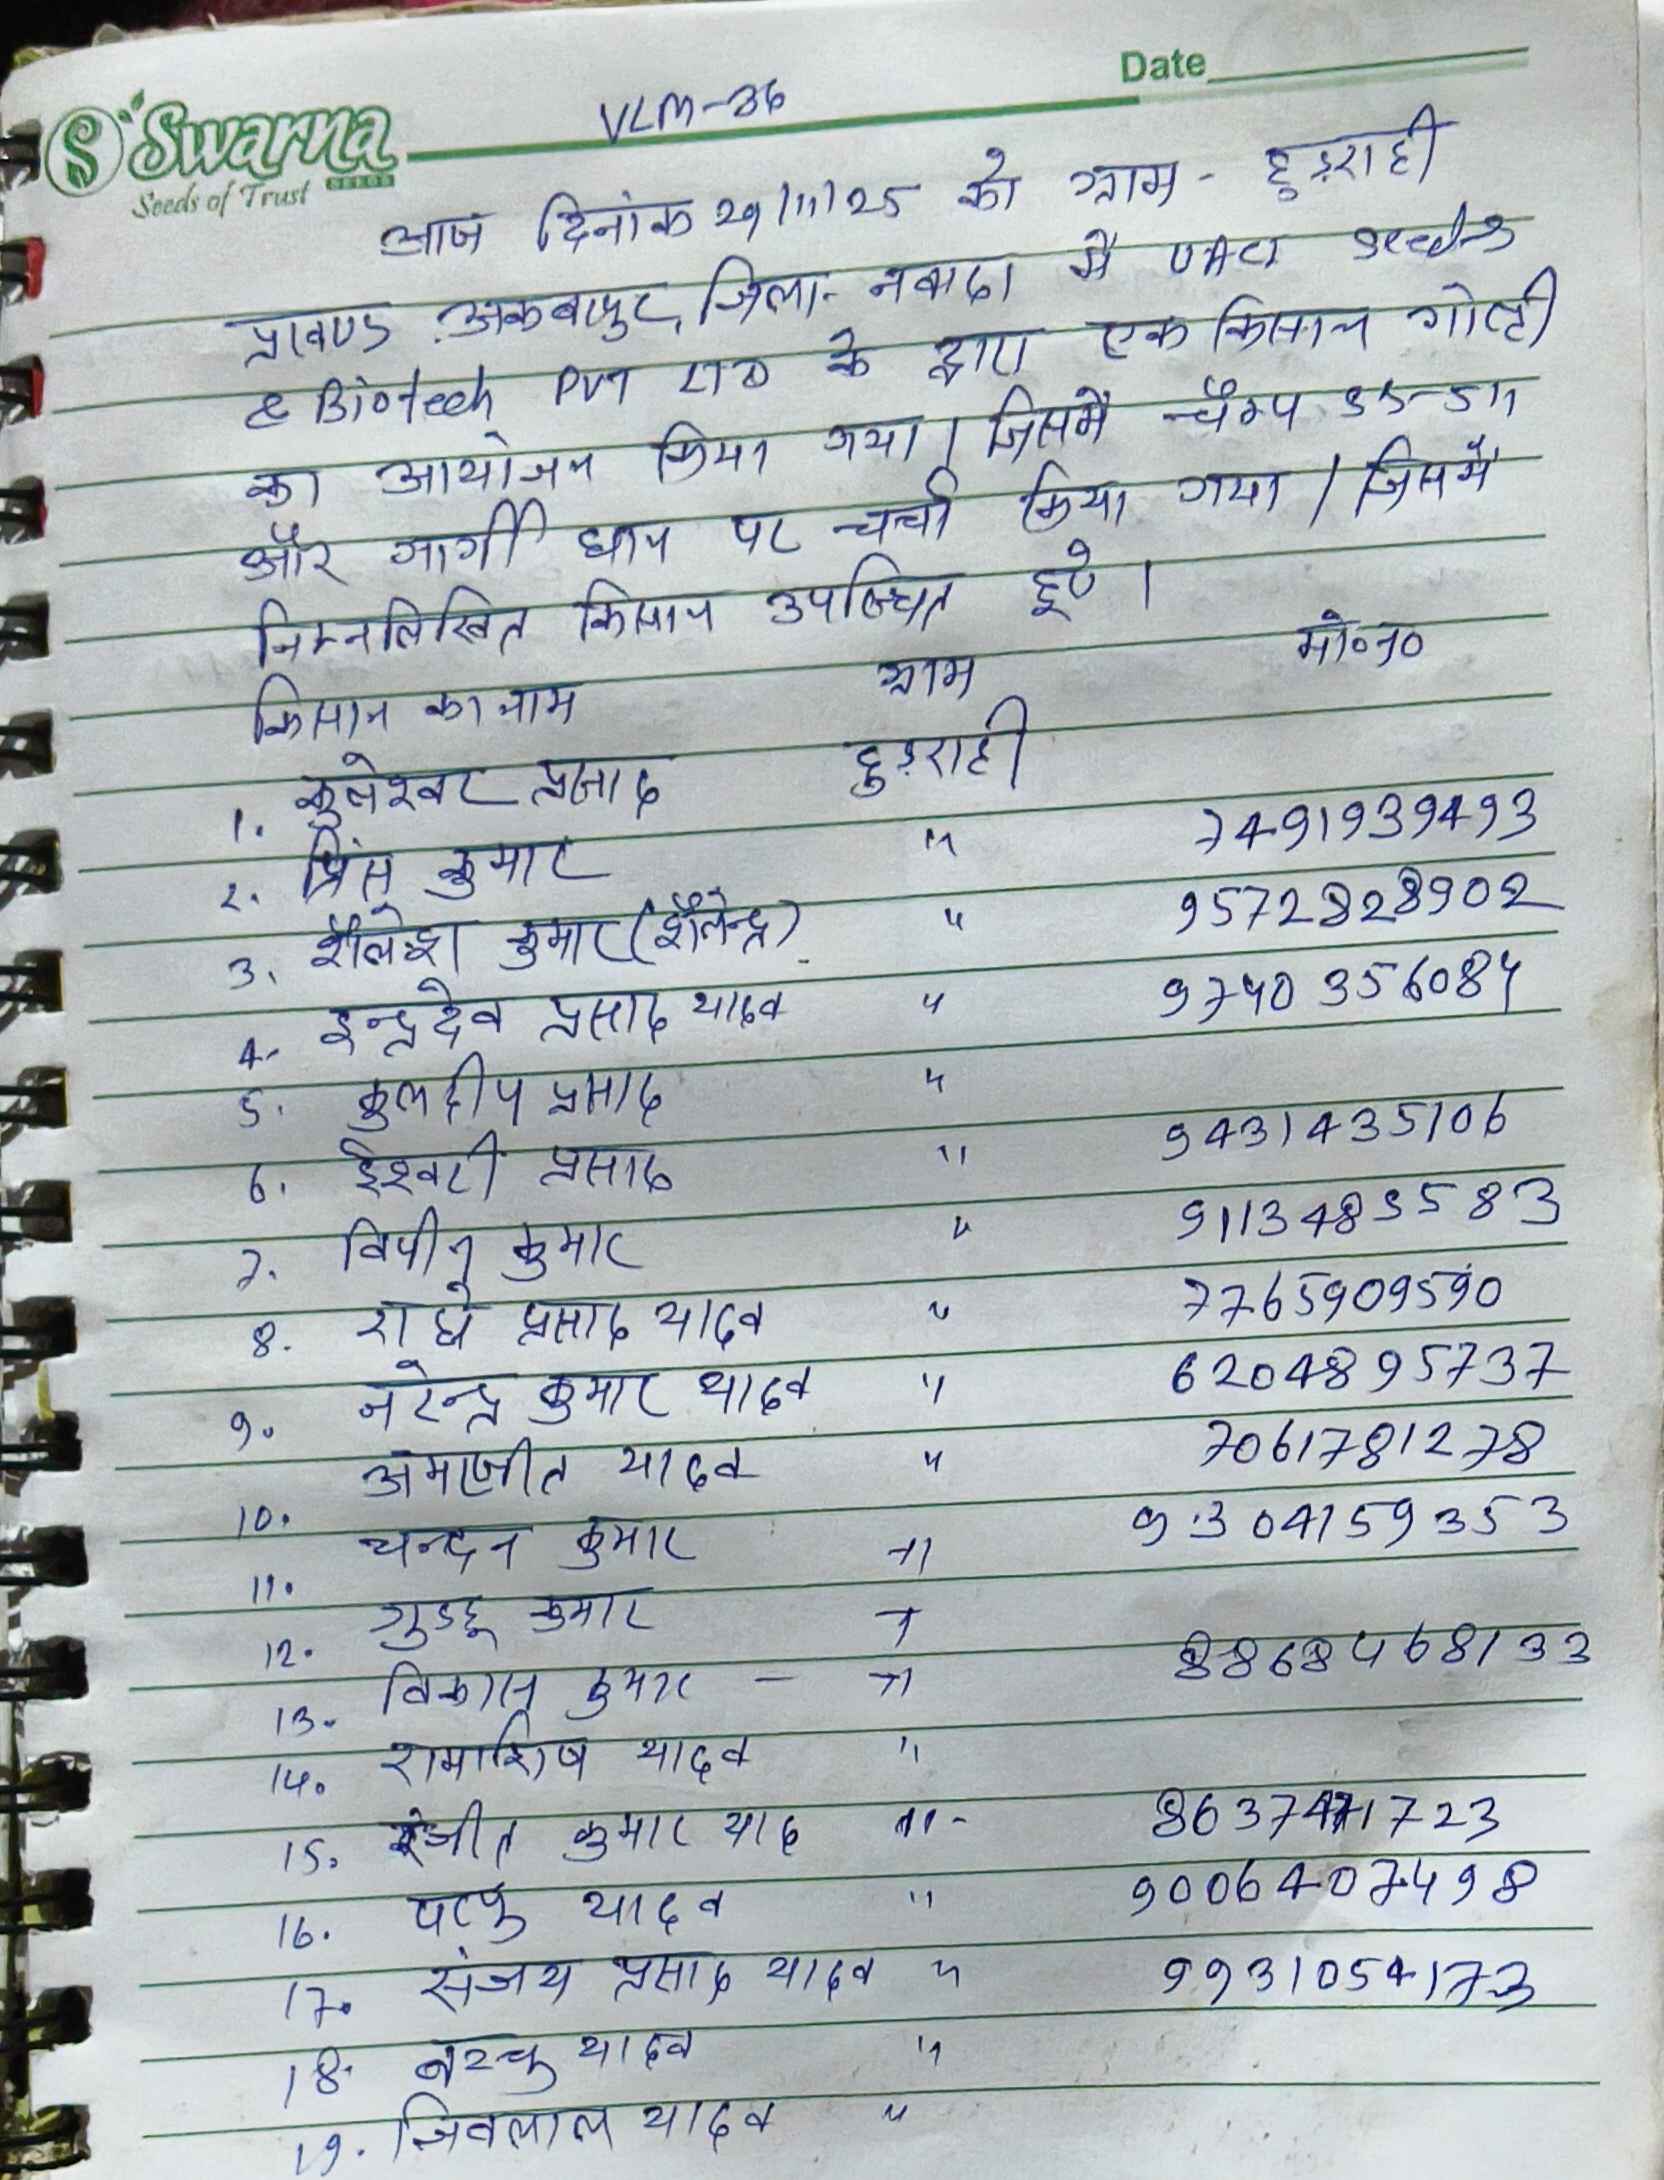 Date
Swarna
SEEDS
Seeds of Trust
VLM-36
आज दिनांक 29/11/25 को ग्राम - हुड़राही
प्रखण्ड अकबरपुर, जिला- नवादा में UACI Seeds
& Biotech PVT LTD के द्वारा एक किसान गोष्टी
का आयोजन किया गया। जिसमें चैम्प SS-511
और गार्गी धान पर चर्चा किया गया। जिसमें
निम्नलिखित किसान उपस्थित हुए।
किसान का नाम ग्राम मो०न०
1. कुलेश्वर प्रसाद हुड़राही
2. प्रिंस कुमार " 7491939493
3. शैलेश कुमार (शैलेन्द्र) " 9572828902
4. इन्द्रदेव प्रसाद यादव " 9740356084
5. कुलदीप प्रसाद "
6. ईश्वरी प्रसाद " 9431435106
7. विपीन कुमार " 9113485583
8. राधे प्रसाद यादव " 7765909590
9. नरेन्द्र कुमार यादव " 6204895737
10. अमरजीत यादव " 7061781278
11. चन्दन कुमार " 9304159353
12. गुड्डू कुमार "
13. विकास कुमार - " 8868468133
14. रामाशिष यादव "
15. रंजीत कुमार याद " - 8637471723
16. यादव " 9006407498
17. संजय प्रसाद यादव " 9931054173
18. यादव "
19. शिवलाल यादव "